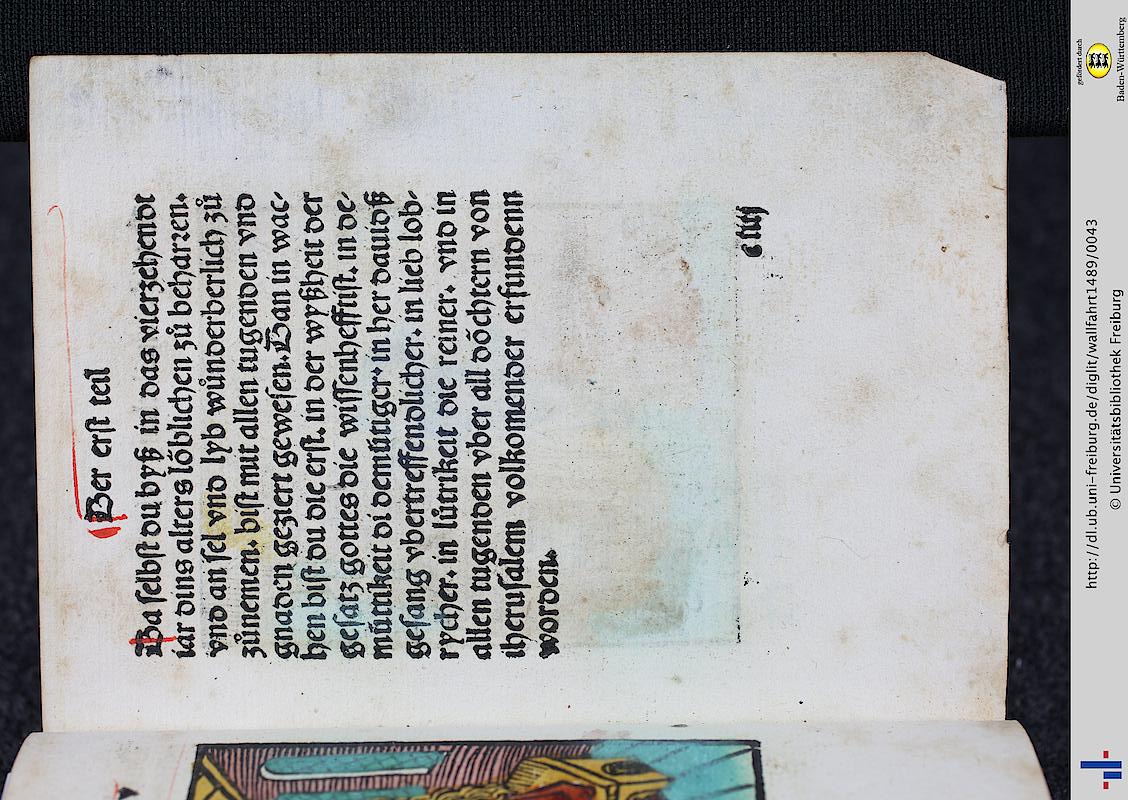 Der erst teil
Da selbst du byß in das vierzehendt
iar dins alters löblichen zů beharren.
vnd an sel vnd lyb wůnderberlich zů
zůnemen. bist mit allen tugenden vnd
gnaden geziert gewesen. Dan in wac-
hen bist du die erst. in der wyßheit der
gesatz gottes die wissenhefftist. in de-
mütikeit di demütiger. in her dauidß
gesang vbertreffendlicher. in lieb lob-
rycher. in lutrikeit die reiner. vnd in
allen tugenden vber all döchtern von
iherusalem volkomender erfundenn
worden.
c iiij
gefördert durch
Baden-Württemberg
http://dl.ub.uni-freiburg.de/diglit/wallfahrt1489/0043
© Universitätsbibliothek Freiburg